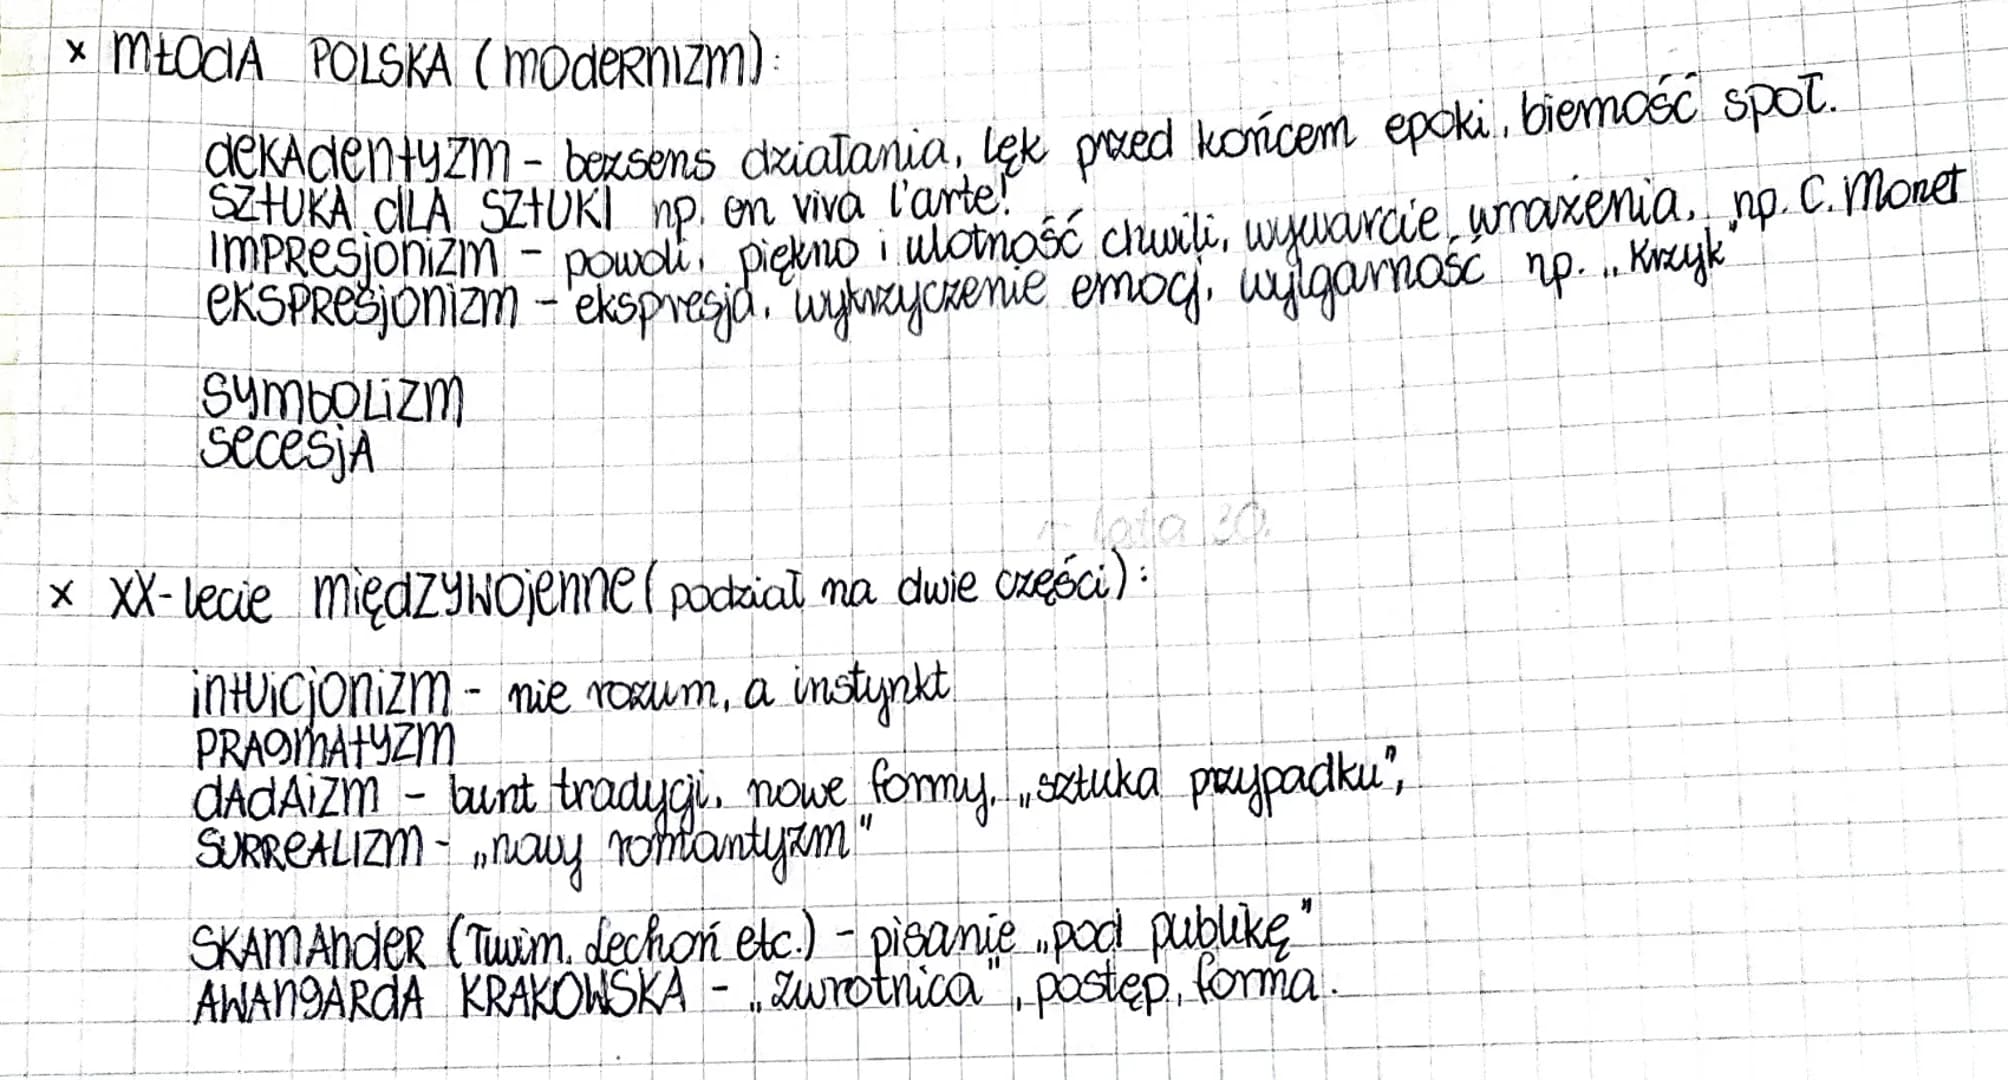 x MŁOdA POLSKA (mOdeRnIZm):
dekAdentyzm - bezsens działania, lęk przed końcem epoki, bierność społ.
SZtUKA dLA SZtUKI np. en viva l'arte!
IMPResjonizm - powoli, piękno i ulotność chwili, wywarcie wrażenia, np. C. Monet
eKSPResjonizm - ekspresja, wykrzyczenie emocji, wylgarność np. „Krzyk"
symbolizm
secesjA
- lata 30.
x XX-lecie międzywojenne (podział na dwie części):
intuicjonizm - nie rozum, a instynkt
PRAgmAtyzm
dAdAizm - bunt tradycji, nowe formy, „sztuka przypadku",
SURReALIZm - „nowy romantyzm"
SKAMAndeR (Tuwim, Lechoń etc.) - pisanie „pod publikę"
AWAngARdA KRAKOWSKA - „Zwrotnica", postęp, forma.